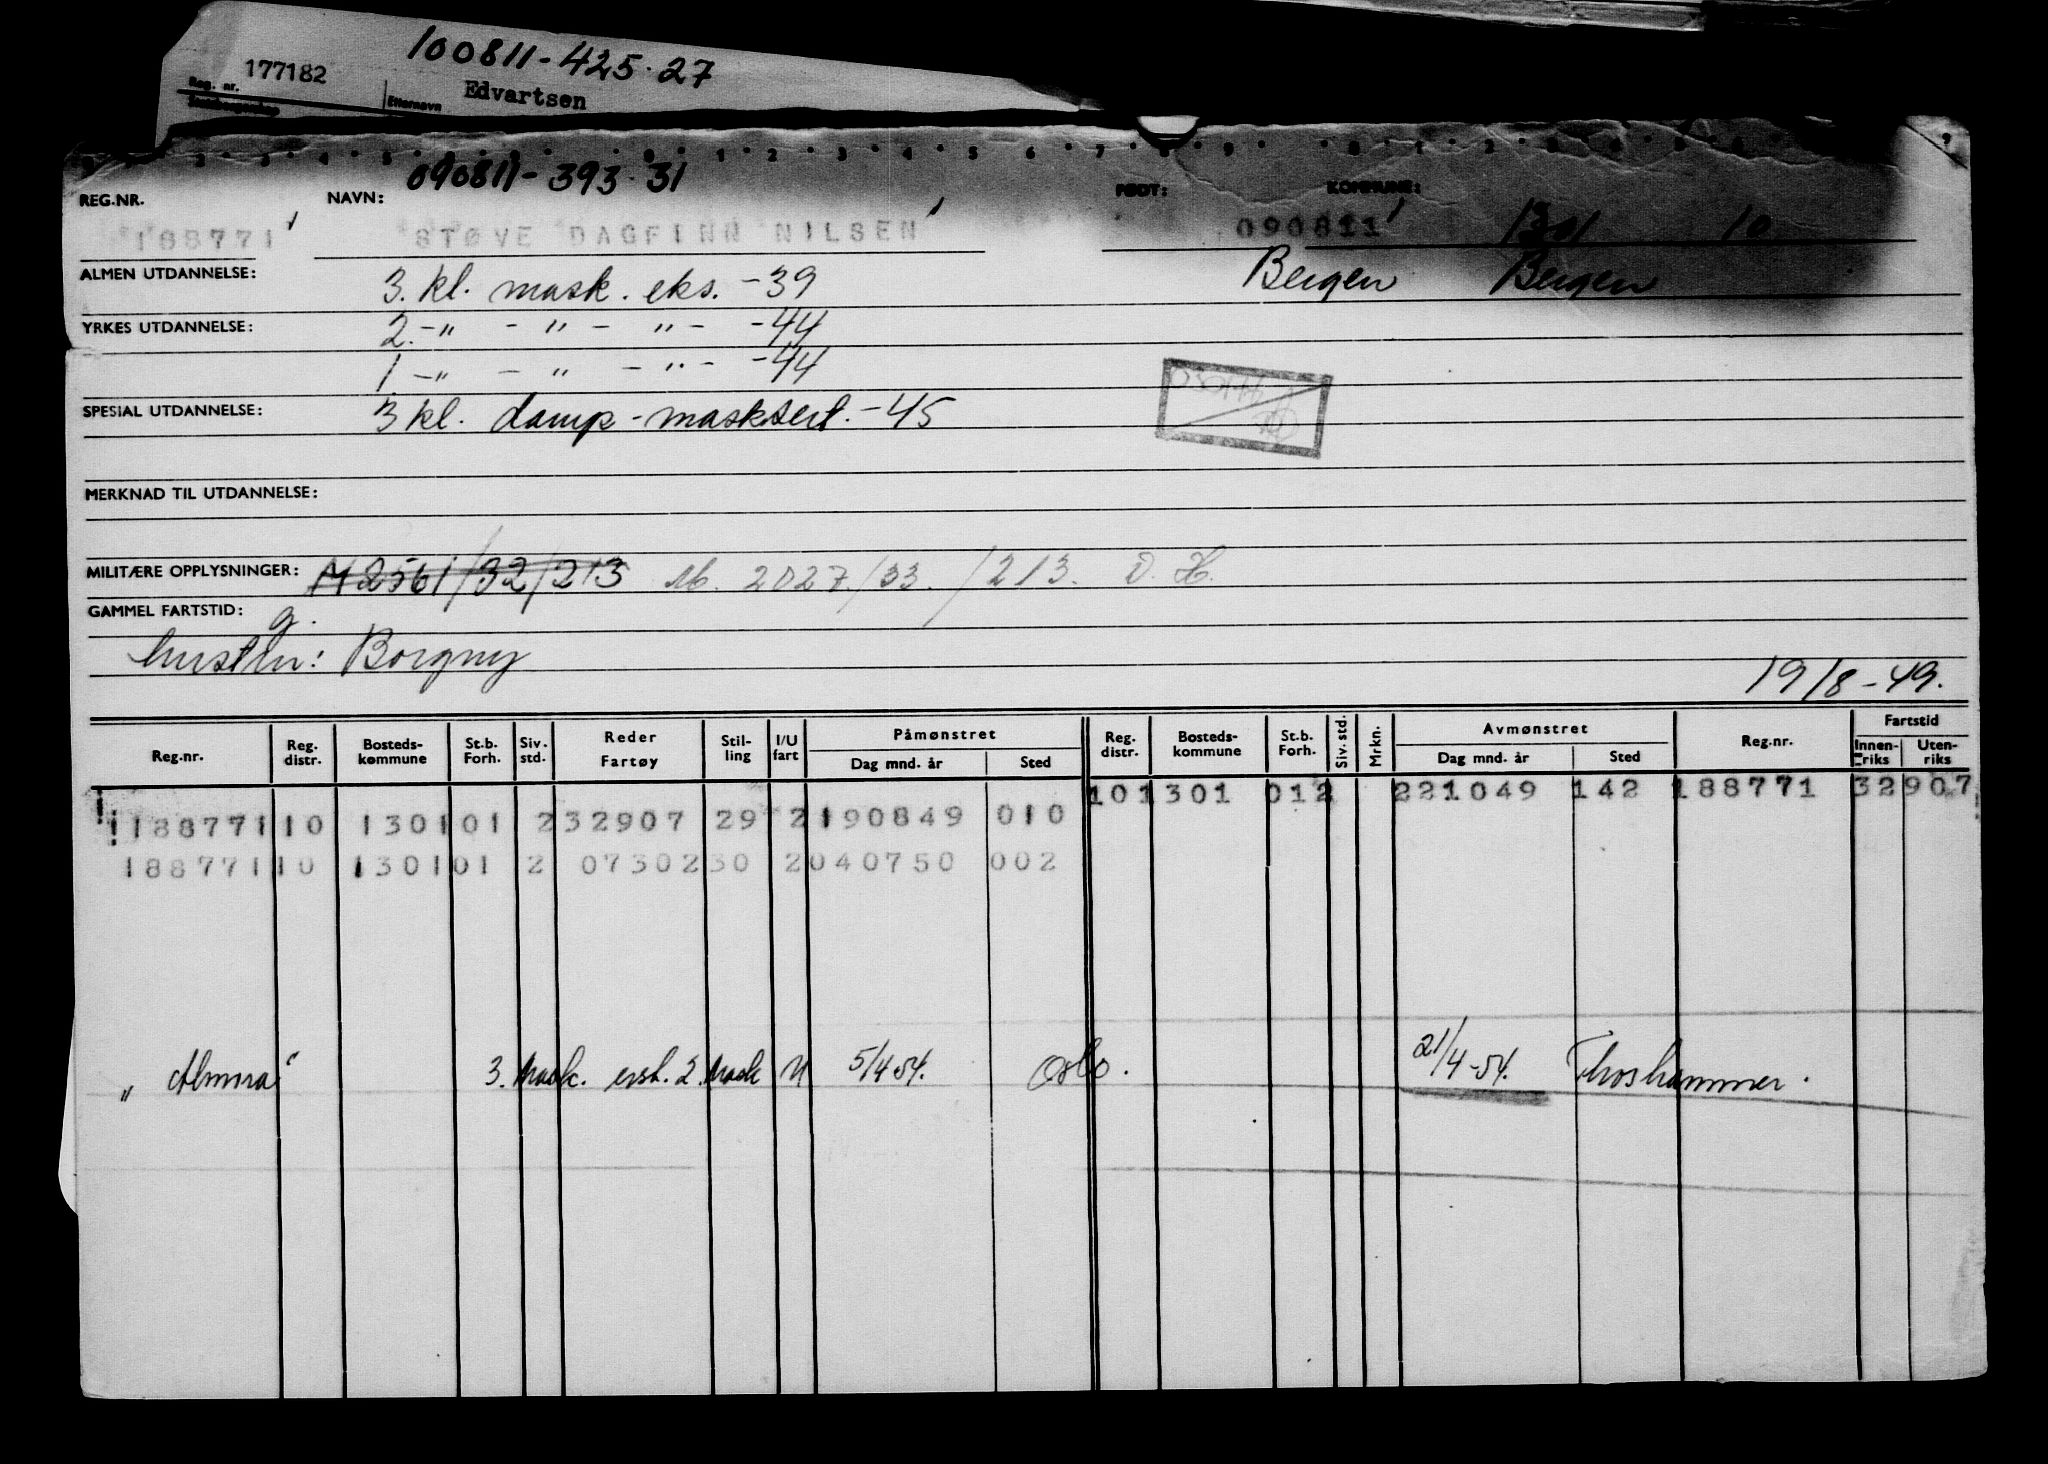 100811-425.27
177182
Reg. nr. Etternavn Edvartsen
090811-393.31
REG.NR. NAVN: FØDT: KOMMUNE:
188771 STØVE DAGFINN NILSEN 090811 1301 10
ALMEN UTDANNELSE: 3. kl. mask. eks. -39 Bergen Bergen
YRKES UTDANNELSE: 2. -"- -"- -"- -44
1 -"- -"- -"- -44
SPESIAL UTDANNELSE: 3 kl. damp-masksert. -45
MERKNAD TIL UTDANNELSE:
MILITÆRE OPPLYSNINGER: M2561/32/213 M. 2027/33./213. D.H.
GAMMEL FARTSTID: g.
hustru: Borgny
19/8-49.
Reg.nr. Reg. distr. Bosteds-kommune St.b. Forh. Siv. std. Reder Fartøy Stil-ling I/U fart Påmønstret Dag mnd. år Sted Reg. distr. Bosteds-kommune St.b. Forh. Siv. std. Mrkn. Avmønstret Dag mnd. år Sted Reg.nr. Fartstid Innen-riks Uten-riks
101301 012 221049 142 188771 32907
188771 10 1301 01 2 32907 29 2 190849 010
188771 10 1301 01 2 07302 30 2 040750 002
"Almora" 3. Mask. erst. 2. Mask U 5/4-54. Oslo. 21/4-54. Thorshammer.